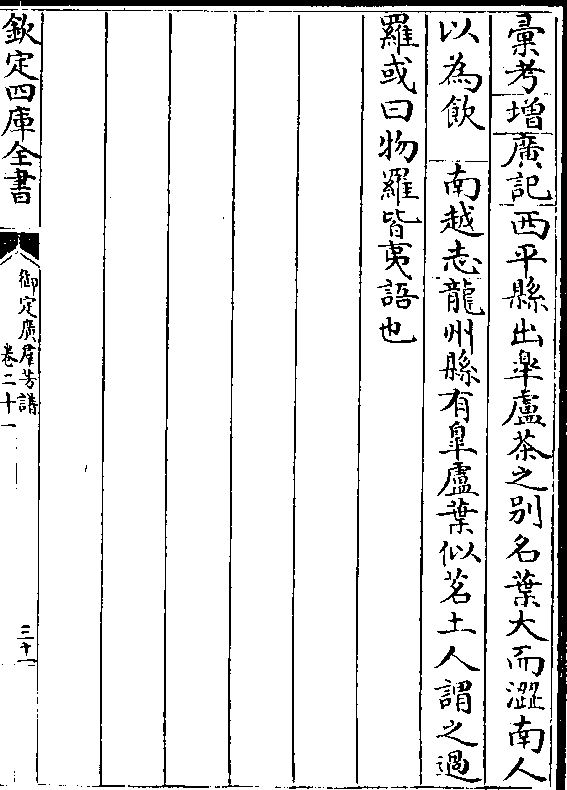 彚考增廣記西平縣出皐盧茶之别名葉大而澀南人
以為飲　南越志龍州縣有臯盧葉似茗土人謂之過
羅或曰物羅皆夷語也
欽定四庫全書
御定廣羣芳譜
卷二十一
三十一